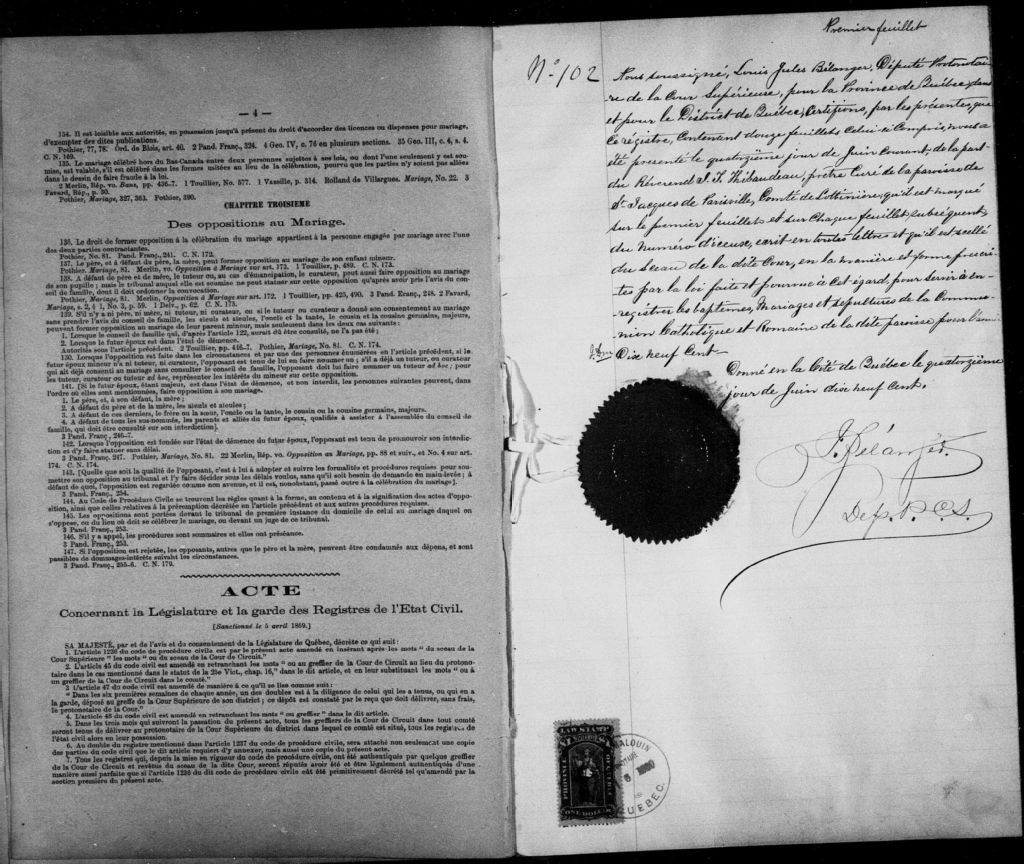 — 4 —
134. Il est loisible aux autorités, en possession jusqu'à présent du droit d'accorder des licences ou dispenses pour mariage,
d'exempter des dites publications.
Pothier, 77, 78. Ord. de Blois, art. 40. 2 Pand. Franç., 324. 4 Geo. IV, c. 76 en plusieurs sections. 35 Geo. III, c. 4, s. 4.
C. N. 169.
135. Le mariage célébré hors du Bas-Canada entre deux personnes sujettes à ses lois, ou dont l'une seulement y est sou-
mise, est valable, s'il est célébré dans les formes usitées au lieu de la célébration, pourvu que les parties n'y soient pas allées
dans le dessin de faire fraude à la loi.
2 Merlin, Rép. vo. Bans, pp. 436-7. 1 Touillier, No. 577. 1 Vazeille, p. 314. Rolland de Villargues. Mariage, No. 22. 3
Favard, Rép., p. 30.
Pothier, Mariage, 327, 363. Pothier, 390.
CHAPITRE TROISIEME
Des oppositions au Mariage.
136. Le droit de former opposition à la célébration du mariage appartient à la personne engagée par mariage avec l'une
des deux parties contractantes.
Pothier, No. 81. Pand. Franç., 241. C. N. 172.
137. Le père, et à défaut du père, la mère, peut former opposition au mariage de son enfant mineur.
Pothier. Mariage, 81. Merlin, vo. Opposition à Mariage sur art. 172. 1 Touillier, p. 489. C. N. 173.
138. A défaut de père et de mère, le tuteur ou, au cas d'émancipation, le curateur, peut aussi faire opposition au mariage
de son pupille; mais le tribunal auquel elle est soumise ne peut statuer sur cette opposition qu'après avoir pris l'avis du con-
seil de famille, dont il doit ordonner la convocation.
Pothier, Mariage, 81. Merlin, Opposition à Mariage sur art. 172. 1 Touillier, pp. 425, 490. 3 Pand. Franç., 248. 2 Favard,
Mariage, s. 2, § 1, No. 3, p. 59. 1 Delv., p. 62. C. N. 175.
139. S'il n'y a ni père, ni mère, ni tuteur, ni curateur, ou si le tuteur ou curateur a donné son consentement au mariage
sans prendre l'avis du conseil de famille, les aïeuls et aïeules, l'oncle et la tante, le cousin et la cousine germains, majeurs,
peuvent former opposition au mariage de leur parent mineur, mais seulement dans les deux cas suivants:
1. Lorsque le conseil de famille qui, d'après l'article 122, serait dû être consulté, ne l'a pas été;
2. Lorsque le futur époux est dans l'état de démence.
Autorités sous l'article précédent. 2 Touillier, pp. 416-7. Pothier, Mariage, No. 81. C. N. 174.
130. Lorsque l'opposition est faite dans les circonstances et par une des personnes énumérées en l'article précédent, si le
futur époux mineur n'a ni tuteur, ni curateur, l'opposant est tenu de lui en faire nommer un; s'il a déjà un tuteur, ou curateur
qui ait déjà consenti au mariage sans consulter le conseil de famille, l'opposant doit lui faire nommer un tuteur ad hoc; pour
les tuteur, curateur ou tuteur ad hoc, représenter les intérêts du mineur sur cette opposition.
141. [Si le futur époux, étant majeur, est dans l'état de démence, et non interdit, les personnes suivantes peuvent, dans
l'ordre où elles sont mentionnées, faire opposition à son mariage.
1. Le père, et, à son défaut, la mère;
2. A défaut du père et de la mère, les aïeuls et aïeules;
3. A défaut de ces derniers, le frère ou la sœur, l'oncle ou la tante, le cousin ou la cousine germains, majeurs.
4. A défaut de tous les sus-nommés, les parents et alliés du futur époux, qualifiés à assister à l'assemblée du conseil de
famille, qui doit être consulté sur son interdiction].
3 Pand. Franç., 246-7.
142. Lorsque l'opposition est fondée sur l'état de démence du futur époux, l'opposant est tenu de promouvoir son interdic-
tion et d'y faire statuer sans délai.
3 Pand. Franç. 247. Pothier, Mariage, No. 81. 22 Merlin, Rép. vo. Opposition au Mariage, pp. 88 et suiv., et No. 4 sur art.
174. C. N. 174.
143. [Quelle que soit la qualité de l'opposant, c'est à lui à adopter et suivre les formalités et procédures requises pour sou-
mettre son opposition au tribunal et l'y faire décider sous les délais voulus, sans qu'il soit besoin de demande en main-levée; à
défaut de quoi, l'opposition est regardée comme non avenue, et il est, nonobstant, passé outre à la célébration du mariage].
3 Pand. Franç., 254.
144. Au Code de Procédure Civile se trouvent les règles quant à la forme, au contenu et à la signification des actes d'oppo-
sition, ainsi que celles relatives à la péremption décrétée en l'article précédent et aux autres procédures requises.
145. Les oppositions sont portées devant le tribunal de première instance du domicile de celui au mariage duquel on
s'oppose, ou du lieu où doit se célébrer le mariage, ou devant un juge de ce tribunal.
3 Pand. Franç., 253.
146. S'il y a appel, les procédures sont sommaires et elles ont préséance.
3 Pand. Franç., 253.
147. Si l'opposition est rejetée, les opposants, autres que le père et la mère, peuvent être condamnés aux dépens, et sont
passibles de dommages-intérêts suivant les circonstances.
3 Pand. Franç., 255-6. C. N. 179.
ACTE
Concernant la Législature et la garde des Registres de l'Etat Civil.
[Sanctionné le 5 avril 1869.]
SA MAJESTÉ, par et de l'avis et du consentement de la Législature de Québec, décrète ce qui suit:
1. L'article 1236 du code de procédure civile est par le présent acte amendé en insérant après les mots "du sceau de la
Cour Supérieure" les mots "ou du sceau de la Cour de Circuit."
2. L'article 45 du code civil est amendé en retranchant les mots "ou au greffier de la Cour de Circuit au lieu du protono-
taire dans le cas mentionné dans le statut de la 25e Vict., chap. 16," dans le dit article, et en leur substituant les mots "ou à
un greffier de la Cour de Circuit dans le comté."
3 L'article 47 du code civil est amendé de manière à ce qu'il se lise comme suit:
"Dans les six premières semaines de chaque année, un des doubles est à la diligence de celui qui les a tenus, ou qui en a
la garde, déposé au greffe de la Cour Supérieure de son district; ce dépôt est constaté par le reçu que doit délivrer, sans frais,
le protonotaire de la Cour."
4. L'article 48 du code civil est amendé en retranchant les mots "ou greffier" dans le dit article.
5. Dans les trois mois qui suivront la passation du présent acte, tous les greffiers de la Cour de Circuit dans tout comté
seront tenus de délivrer au protonotaire de la Cour Supérieure du district dans lequel ce comté est situé, tous les registres de
l'état civil alors en leur possession.
6. Au double du registre mentionné dans l'article 1237 du code de procédure civile, sera attaché non seulement une copie
des parties du code civil que le dit article requiert d'y annexer, mais aussi une copie du présent acte.
7. Tous les registres qui, depuis la mise en vigueur du code de procédure civile, ont été authentiqués par quelque greffier
de la Cour de Circuit et revêtus du sceau de la dite Cour, seront réputés avoir été et être légalement authentiqués d'une
manière aussi parfaite que si l'article 1236 du dit code de procédure civile eût été primitivement décrété tel qu'amendé par la
section première du présent acte.
Premier feuillet
No 102
Nous soussigné, Louis Jules Bélanger, Député Protonotai-
re de la Cour Supérieure, pour la Province de Québec, dans
et pour le District de Québec, Certifions, par les présentes, que
Ce régistre, Contenant douze feuillets Celui-ci Compris, nous a
été présenté le quatorzième jour de Juin courant, de la part
du Révérend J. F. Thibaudeau, prêtre Curé de la paroisse de
St. Jacques de Parisville, Comté de Lotbinière, qu'il est marqué
sur le premier feuillet et sur Chaque feuillet subséquent
du numéro d'iceux, écrit en toutes lettres et qu'il est scellé
du Sceau de la dite Cour, en la manière et forme prescri-
tes par la loi faite et pourvue à cet égard, pour servir à en-
registrer les baptêmes, Mariages et sépultures de la Commu-
nion Catholique et Romaine de la dite paroisse pour l'année
Dix neuf Cent.
Donné en la Cité de Québec le quatorzième
jour de Juin dix neuf Cent.
J. Bélanger.
Dep. P. C. S.
LAW STAMP
$1 $1
PROVINCE OF QUEBEC
ONE DOLLAR
MALOUIN
QUEBEC.